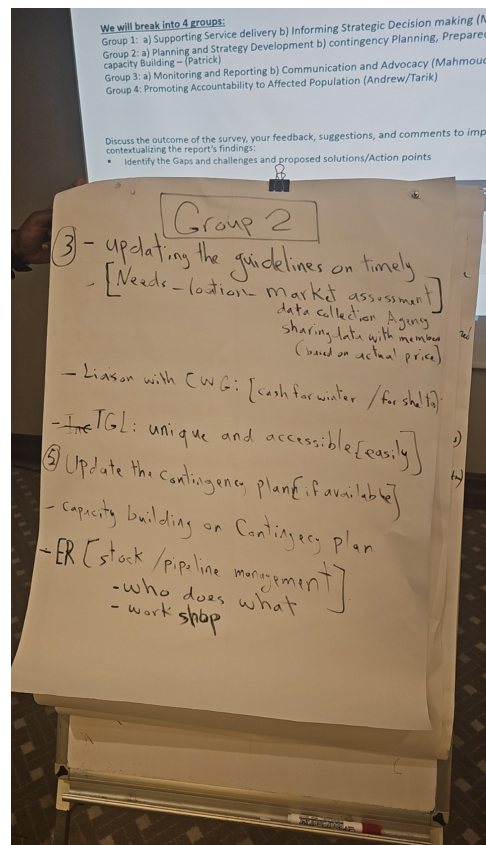 We will break into 4 groups:
Group 1: a) Supporting Service delivery b) Informing Strategic Decision making (
Group 2: a) Planning and Strategy Development b) contingency Planning,
capacity Building – (Patrick)
Group 3: a) Monitoring and Reporting b) Communication and Advocacy
Group 4: Promoting Accountability to Affected Population (Andrew/Tarik)
Discuss the outcome of the survey, your feedback, suggestions, and comments to
contextualizing the report's findings:
• Identify the Gaps and challenges and proposed solutions/Action points
Group 2
③ - updating the guidelines on timely
- [Needs - loction - market assessment]
data collection Ageny
sharing data with member
(based on actual price)
- Liason with CWG: [cash for winter / for
- TGL: unique and accessible [easily]
⑤ Update the contingency plan [if available]
- capacity building on Contingecy plan
- ER [stock / pipeline management]
- who does what
- work shop